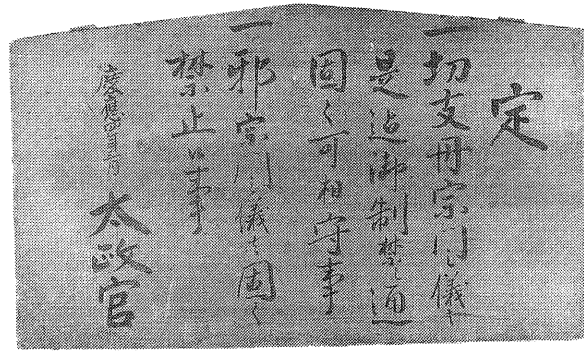 定
一切支丹宗門之儀者
是迠御制禁之通
固く可相守事
一邪宗門之儀者固く
禁止候事
慶應四年三月
太政官